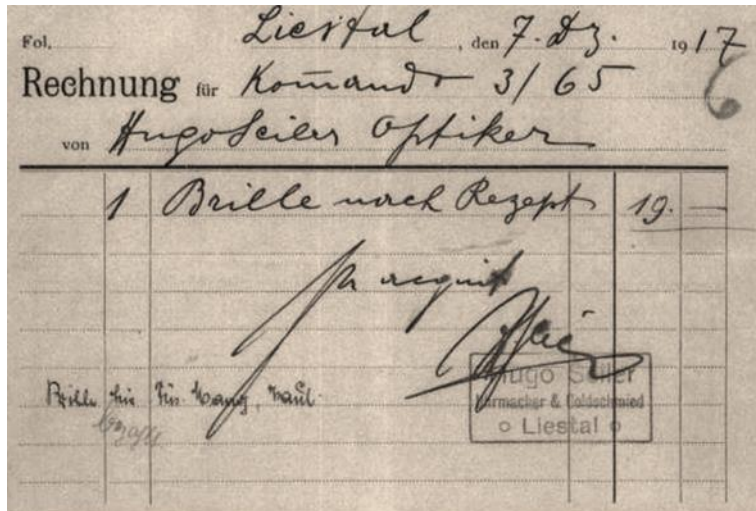 Fol. Liestal, den 7. Dz. 1917
6
Rechnung für Komando 3/65
von Hugo Seiler Optiker
1 Brille nach Rezept 19. —
pr acquit
Hugo Seiler
Uhrmacher & Goldschmied
Liestal
Brille für Füs.
bezahlt